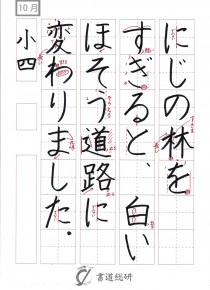 10月
にじの林を
すぎると、白い
ほそう道路に
変わりました。
小四
書道総研